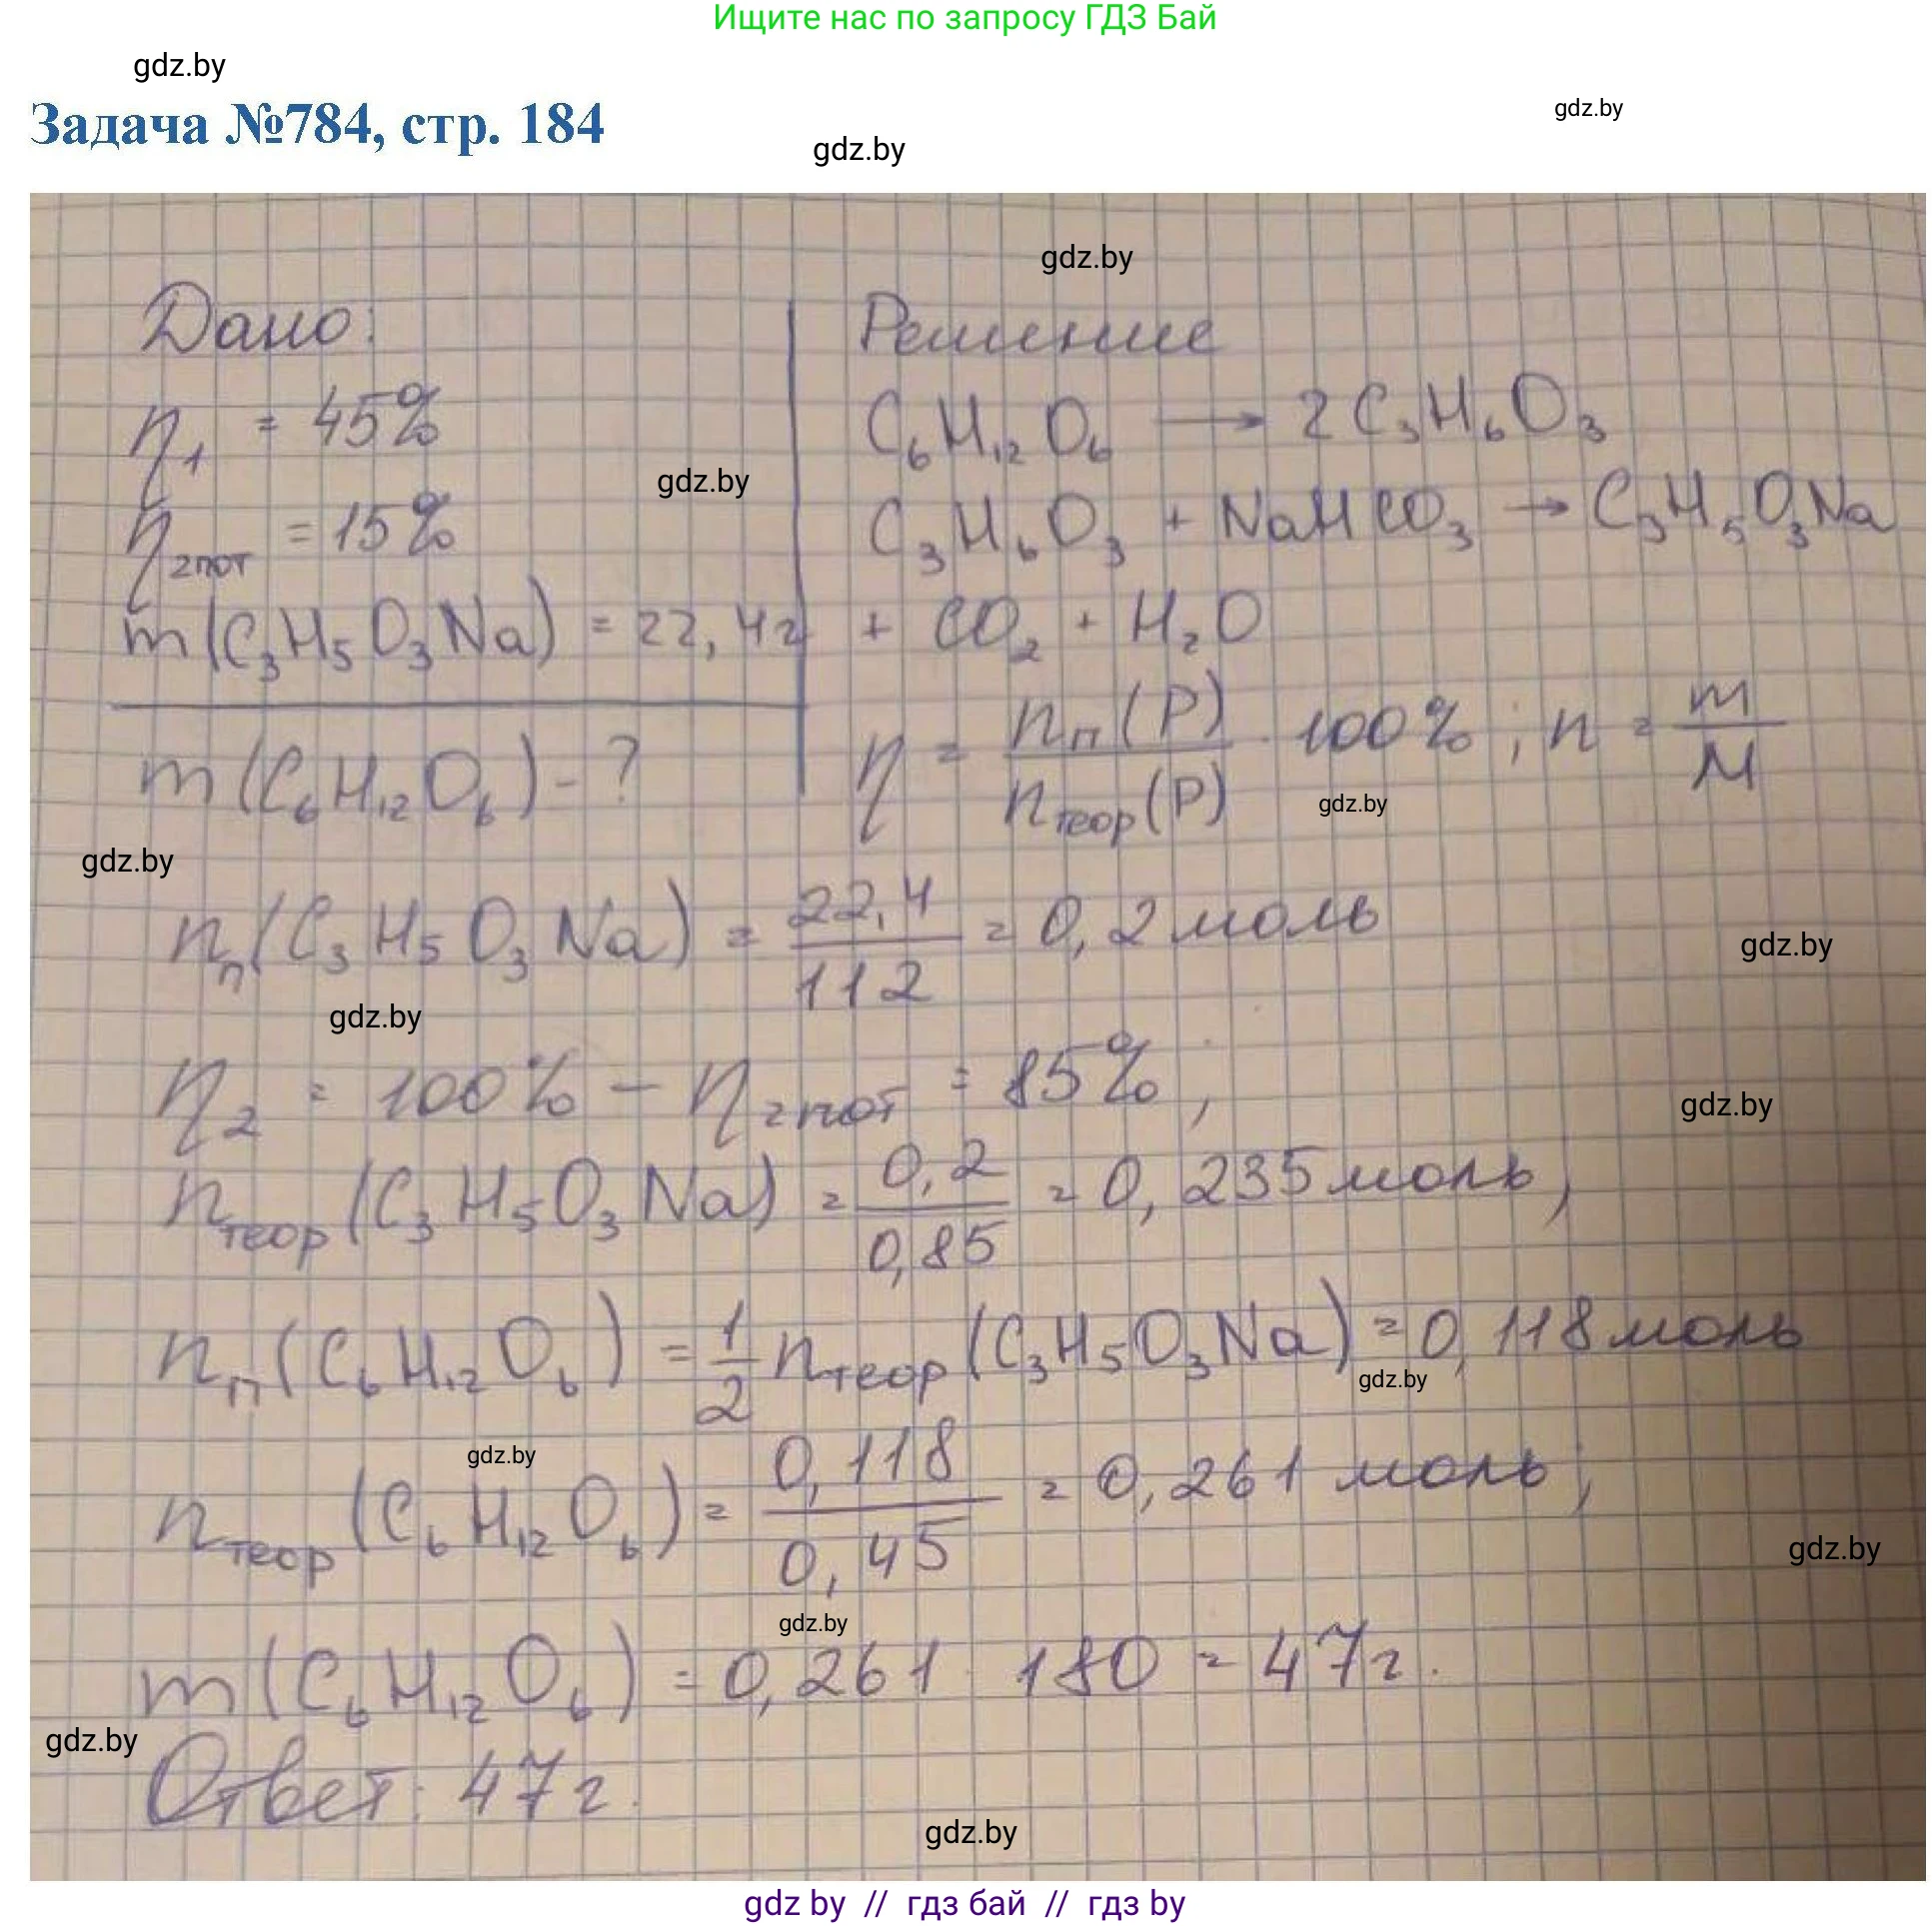 Ищите нас по запросу ГДЗ Бай
gdz.by
Задача №784, стр. 184
gdz.by
gdz.by
gdz.by
Дано:
Решение
η₁ = 45%
C₆H₁₂O₆ → 2C₃H₆O₃
gdz.by
η₂пот = 15%
C₃H₆O₃ + NaHCO₃ → C₃H₅O₃Na
m(C₃H₅O₃Na) = 22,4г
+ CO₂ + H₂O
m(C₆H₁₂O₆) - ?
η = nп(P) / nтеор(P) · 100% ; n = m / M
gdz.by
gdz.by
nп(C₃H₅O₃Na) = 22,4 / 112 = 0,2 моль
gdz.by
gdz.by
η₂ = 100% − η₂пот = 85% ;
gdz.by
nтеор(C₃H₅O₃Na) = 0,2 / 0,85 = 0,235 моль;
nп(C₆H₁₂O₆) = 1/2 nтеор(C₃H₅O₃Na) = 0,118 моль
gdz.by
gdz.by
nтеор(C₆H₁₂O₆) = 0,118 / 0,45 = 0,261 моль;
gdz.by
gdz.by
m(C₆H₁₂O₆) = 0,261 · 180 = 47г.
gdz.by
Ответ: 47г.
gdz.by
gdz by // гдз бай // гдз by